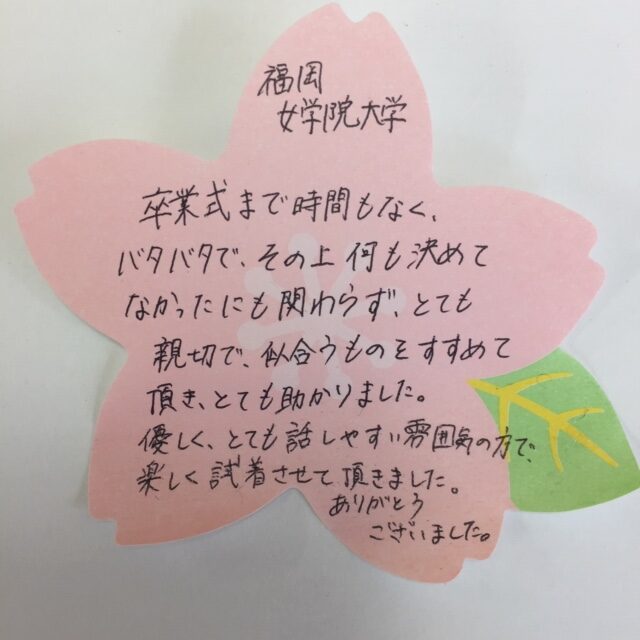 福岡
女学院大学
卒業式まで時間もなく、
バタバタで、その上何も決めて
なかったにも関わらず、とても
親切で、似合うものをすすめて
頂き、とても助かりました。
優しく、とても話しやすい雰囲気の方で、
楽しく試着させて頂きました。
ありがとう
ございました。